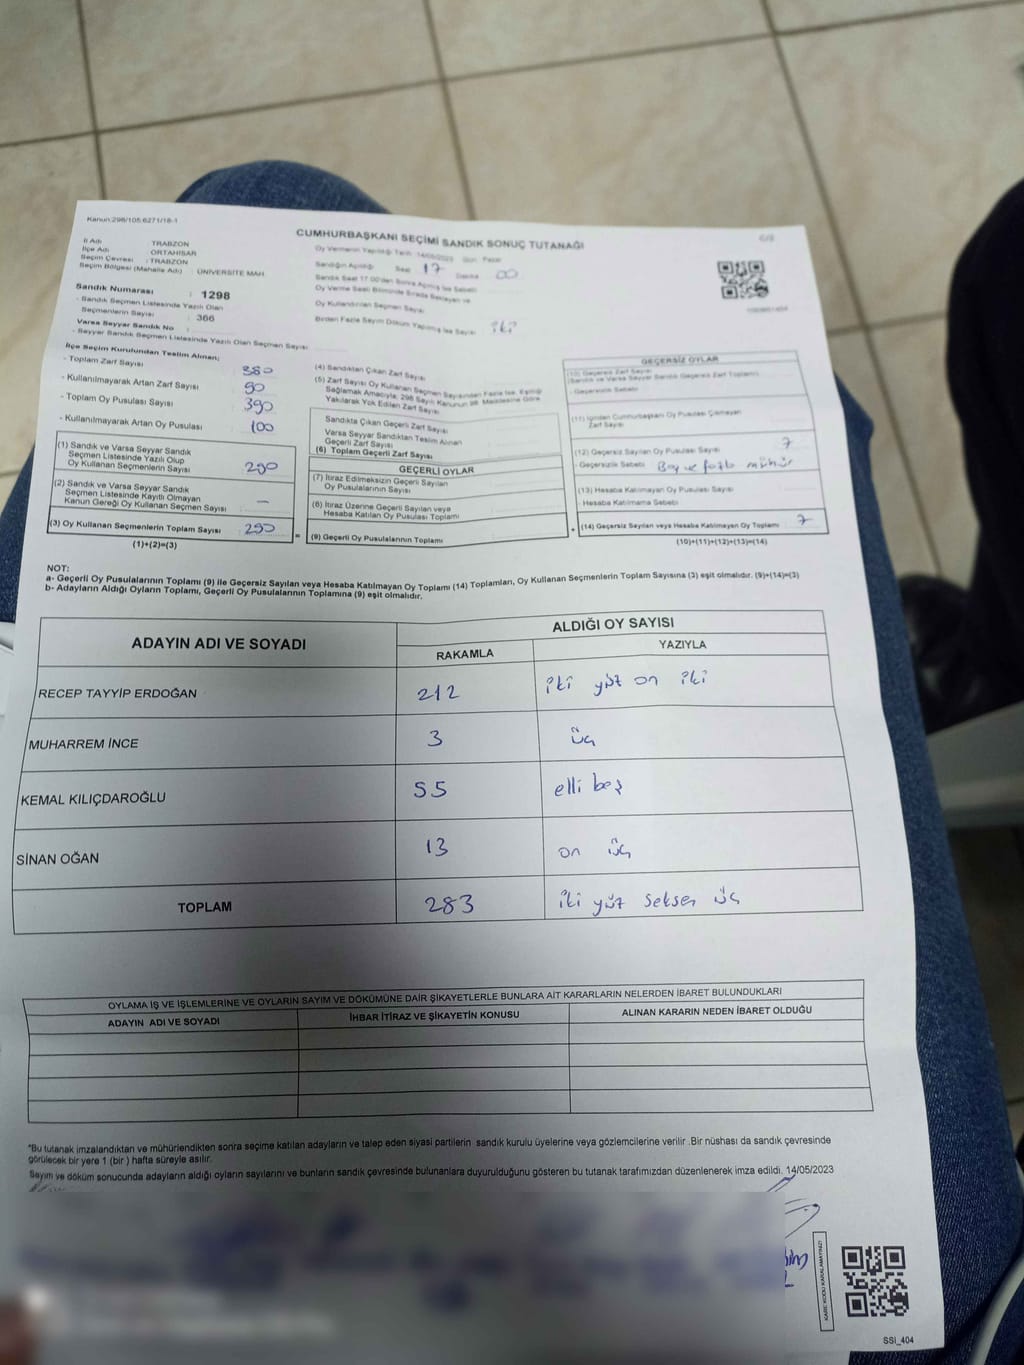 Kanun:298/105;6271/18-1
CUMHURBAŞKANI SEÇİMİ SANDIK SONUÇ TUTANAĞI
İl Adı TRABZON
İlçe Adı ORTAHİSAR
Seçim Çevresi : TRABZON
Seçim Bölgesi (Mahalle Adı) : ÜNİVERSİTE MAH.
Sandık Numarası : 1298
- Sandık Seçmen Listesinde Yazılı Olan
Seçmenlerin Sayısı : 366
Varsa Seyyar Sandık No :
- Seyyar Sandık Seçmen Listesinde Yazılı Olan Seçmen Sayısı
Oy Vermenin Yapıldığı Tarih 14/05/2023 Gün Pazar
Sandığın Açıldığı Saat 17 Dakika 00
Sandık Saat 17.00'den Sonra Açılmış İse Sebebi
Oy Verme Saati Bitiminde Sırada Bekleyen ve
Oy Kullandırılan Seçmen Sayısı
Birden Fazla Sayım Döküm Yapılmış İse Sayısı iki
İlçe Seçim Kurulundan Teslim Alınan;
- Toplam Zarf Sayısı 380
- Kullanılmayarak Artan Zarf Sayısı 90
- Toplam Oy Pusulası Sayısı 390
- Kullanılmayarak Artan Oy Pusulası 100
(1) Sandık ve Varsa Seyyar Sandık
Seçmen Listesinde Yazılı Olup
Oy Kullanan Seçmenlerin Sayısı 290
(2) Sandık ve Varsa Seyyar Sandık
Seçmen Listesinde Kayıtlı Olmayan
Kanun Gereği Oy Kullanan Seçmen Sayısı —
(3) Oy Kullanan Seçmenlerin Toplam Sayısı 290
(1)+(2)=(3)
(4) Sandıktan Çıkan Zarf Sayısı
(5) Zarf Sayısı Oy Kullanan Seçmen Sayısından Fazla İse, Eşitliği
Sağlamak Amacıyla, 298 Sayılı Kanunun 98. Maddesine Göre
Yakılarak Yok Edilen Zarf Sayısı
Sandıkta Çıkan Geçerli Zarf Sayısı
Varsa Seyyar Sandıktan Teslim Alınan
Geçerli Zarf Sayısı
(6) Toplam Geçerli Zarf Sayısı
GEÇERLİ OYLAR
(7) İtiraz Edilmeksizin Geçerli Sayılan
Oy Pusulalarının Sayısı
(8) İtiraz Üzerine Geçerli Sayılan veya
Hesaba Katılan Oy Pusulası Toplamı
= (9) Geçerli Oy Pusulalarının Toplamı
GEÇERSİZ OYLAR
(10) Geçersiz Zarf Sayısı
(Sandık ve Varsa Seyyar Sandık Geçersiz Zarf Toplamı)
- Geçersizlik Sebebi
(11) İçinden Cumhurbaşkanı Oy Pusulası Çıkmayan
Zarf Sayısı
(12) Geçersiz Sayılan Oy Pusulası Sayısı 7
- Geçersizlik Sebebi Boş ve fazla mühür
(13) Hesaba Katılmayan Oy Pusulası Sayısı
- Hesaba Katılmama Sebebi
+ (14) Geçersiz Sayılan veya Hesaba Katılmayan Oy Toplamı 7
(10)+(11)+(12)+(13)=(14)
NOT:
a- Geçerli Oy Pusulalarının Toplamı (9) ile Geçersiz Sayılan veya Hesaba Katılmayan Oy Toplamı (14) Toplamları, Oy Kullanan Seçmenlerin Toplam Sayısına (3) eşit olmalıdır. (9)+(14)=(3)
b- Adayların Aldığı Oyların Toplamı, Geçerli Oy Pusulalarının Toplamına (9) eşit olmalıdır.
ADAYIN ADI VE SOYADI ALDIĞI OY SAYISI
RAKAMLA YAZIYLA
RECEP TAYYİP ERDOĞAN 212 iki yüz on iki
MUHARREM İNCE 3 üç
KEMAL KILIÇDAROĞLU 55 elli beş
SİNAN OĞAN 13 on üç
TOPLAM 283 iki yüz seksen üç
OYLAMA İŞ VE İŞLEMLERİNE VE OYLARIN SAYIM VE DÖKÜMÜNE DAİR ŞİKAYETLERLE BUNLARA AİT KARARLARIN NELERDEN İBARET BULUNDUKLARI
ADAYIN ADI VE SOYADI İHBAR İTİRAZ VE ŞİKAYETİN KONUSU ALINAN KARARIN NEDEN İBARET OLDUĞU
"Bu tutanak imzalandıktan ve mühürlendikten sonra seçime katılan adayların ve talep eden siyasi partilerin sandık kurulu üyelerine veya gözlemcilerine verilir .Bir nüshası da sandık çevresinde
görülecek bir yere 1 (bir ) hafta süreyle asılır.
Sayım ve döküm sonucunda adayların aldığı oyların sayılarını ve bunların sandık çevresinde bulunanlara duyurulduğunu gösteren bu tutanak tarafımızdan düzenlenerek imza edildi. 14/05/2023
KARE KODU KARALAMAYINIZ!
SSİ_404